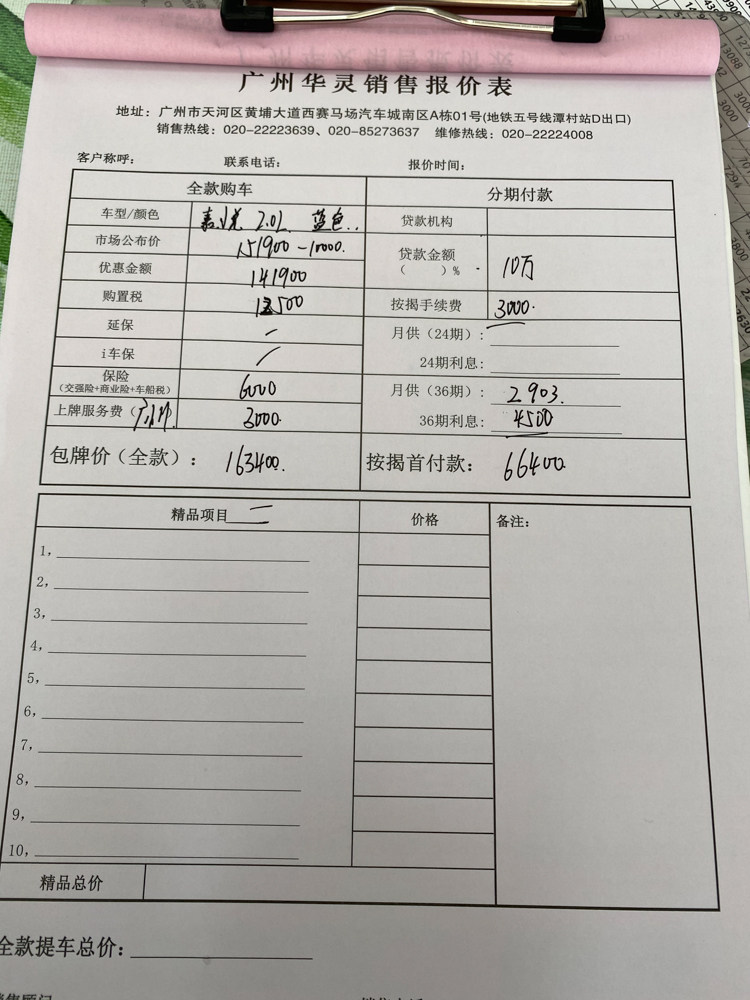 广州华灵销售报价表
地址：广州市天河区黄埔大道西赛马场汽车城南区A栋01号(地铁五号线潭村站D出口)
销售热线：020-22223639、020-85273637 维修热线：020-22224008
客户称呼： 联系电话： 报价时间：
全款购车 分期付款
车型/颜色 2.0L 蓝色 贷款机构
市场公布价 151900-10000.
贷款金额 10万
（ ）%
优惠金额 141900
购置税 12500 按揭手续费 3000.
延保 月供（24期）：
24期利息：
i车保
保险 6000 月供（36期）： 2903.
（交强险+商业险+车船税）
上牌服务费（广州 3000. 36期利息： 4500
包牌价（全款）： 163400. 按揭首付款： 66400
精品项目 价格 备注：
1，
2，
3，
4，
5，
6，
7，
8，
9，
10，
精品总价
全款提车总价：